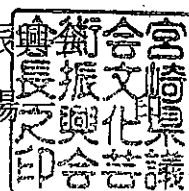 宮崎県議
会文化芸
術振興会
會長之印